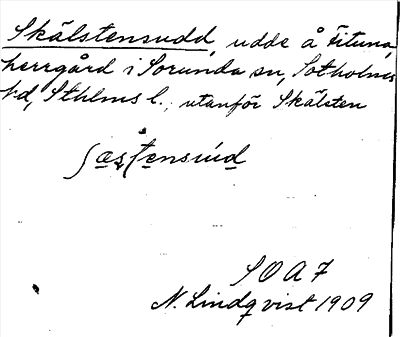 Skälstensudd, udde å Fituna,
herrgård i Sorunda sn, Sotholms
hd, Sthlms l.; utanför Skälsten
S O A 7
N. Lindqvist 1909